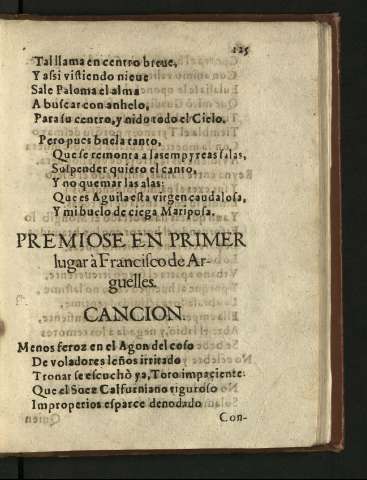 125
Tal llama en centro breue,
Y assi vistiendo nieue
Sale Paloma el alma
A buscar con anhelo,
Para su centro, y nido todo el Cielo.
Pero pues buela tanto,
Que se remonta a las empyreas salas,
Suspender quiero el canto,
Y no quemar las alas:
Que es Aguila esta virgen caudalosa,
Y mi buelo de ciega Mariposa.
PREMIOSE EN PRIMER
lugar à Francisco de Ar-
guelles.
CANCION.
Menos feroz en el Agon del coso
De voladores leños irritado
Tronar se escuchò ya, Toro impaciente:
Que el Soez Calfurniano riguroso
Improperios esparce denodado
Con-